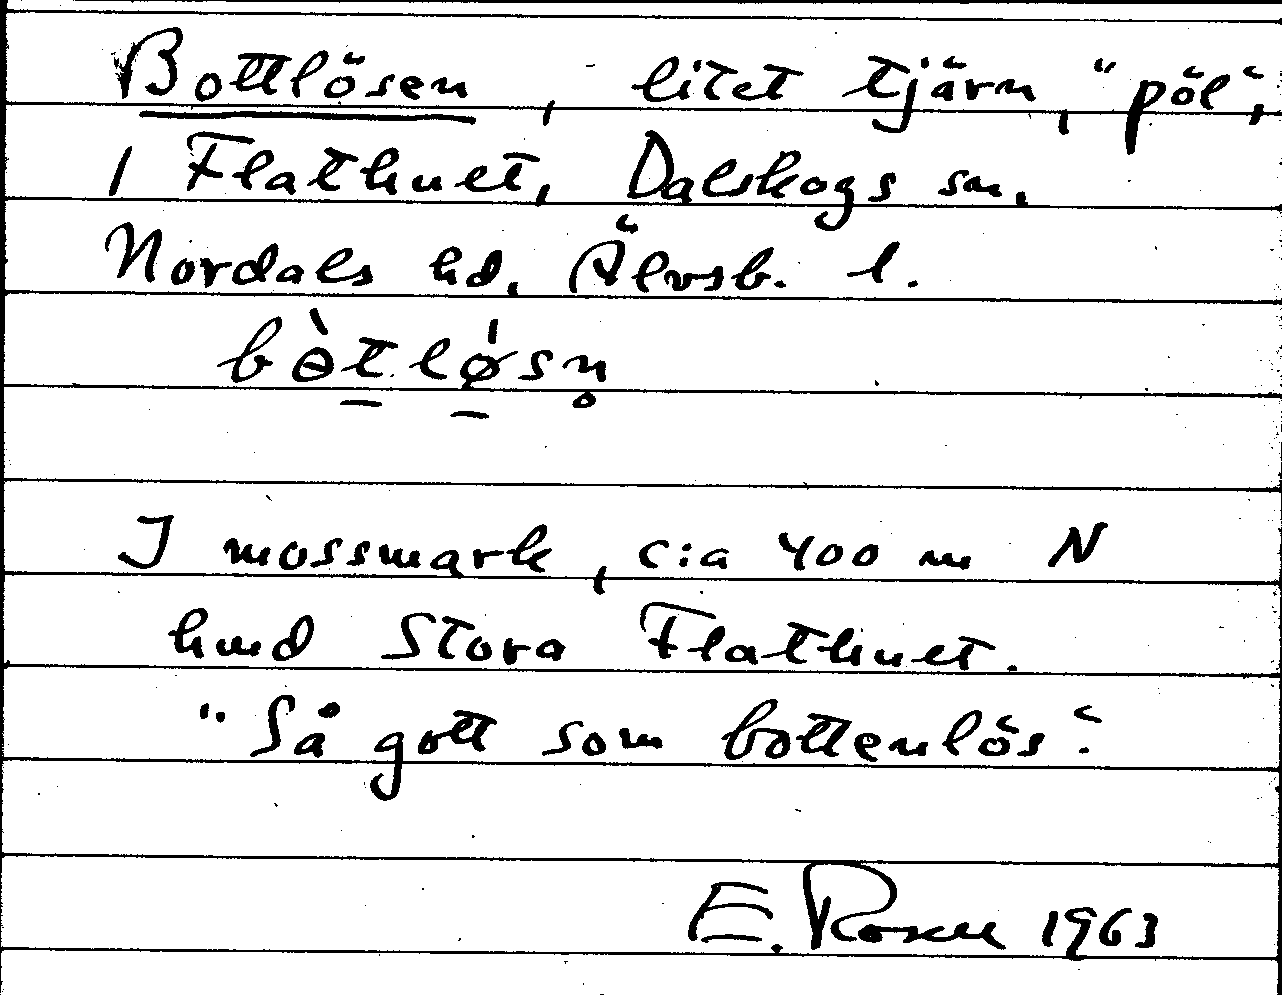 Bottlösen, litet tjärn, "pöl",
i Flathult, Dalskogs sn.
Nordals hd. Älvsb. l.
bɵ̀t̠lǿ̠sn̥
I mossmark, c:a 400 m N
hmd Stora Flathult.
"Så gott som bottenlös".
E. Rosell 1963